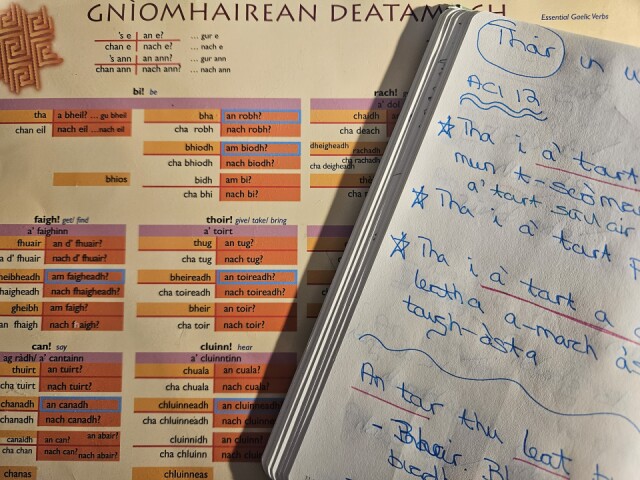 GNÌOMHAIREAN DEATAMACH
Essential Gaelic Verbs
's e an e? ... gur e
chan e nach e? ... nach e
's ann an ann? ... gur ann
chan ann nach ann? ... nach ann
bi! be
tha a bheil? ... gu bheil
chan eil nach eil ... nach eil
bha an robh?
cha robh nach robh?
bhiodh am biodh?
cha bhiodh nach biodh?
bhios
bidh am bi?
cha bhi nach bi?
rach!
a' dol
chaidh
cha deach
dheigheadh
rachadh
cha deigheadh
cha rachadh
thèid
faigh! get/ find
a' faighinn
fhuair an d' fhuair?
d' fhuair nach d' fhuair?
am faigheadh?
nach fhaigheadh?
gheibh am faigh?
fhaigh nach fhaigh?
thoir! give/ take/ bring
a' toirt
thug an tug?
cha tug nach tug?
bheireadh an toireadh?
cha toireadh nach toireadh?
bheir an toir?
cha toir nach toir?
can! say
ag ràdh/ a' cantainn
thuirt an tuirt?
cha tuirt nach tuirt?
chanadh an canadh
chanadh nach canadh?
canaidh an can? an abair?
cha chan nach can? nach abair?
chanas
cluinn! hear
a' cluinntinn
chuala an cuala?
cha chuala nach cuala?
chluinneadh an cluinneadh
cha chluinneadh nach cluinn
cluinnidh an cluinn
cha chluinn nach cluinn
chluinneas
Thàr
AC1 12
Tha i a' tart
mun t-seòma
a' tart sùil air
Tha i a' tart
Tha i a' tart a
leotha a-march
taigh-òsta
An tar thu leat
- Bheir.